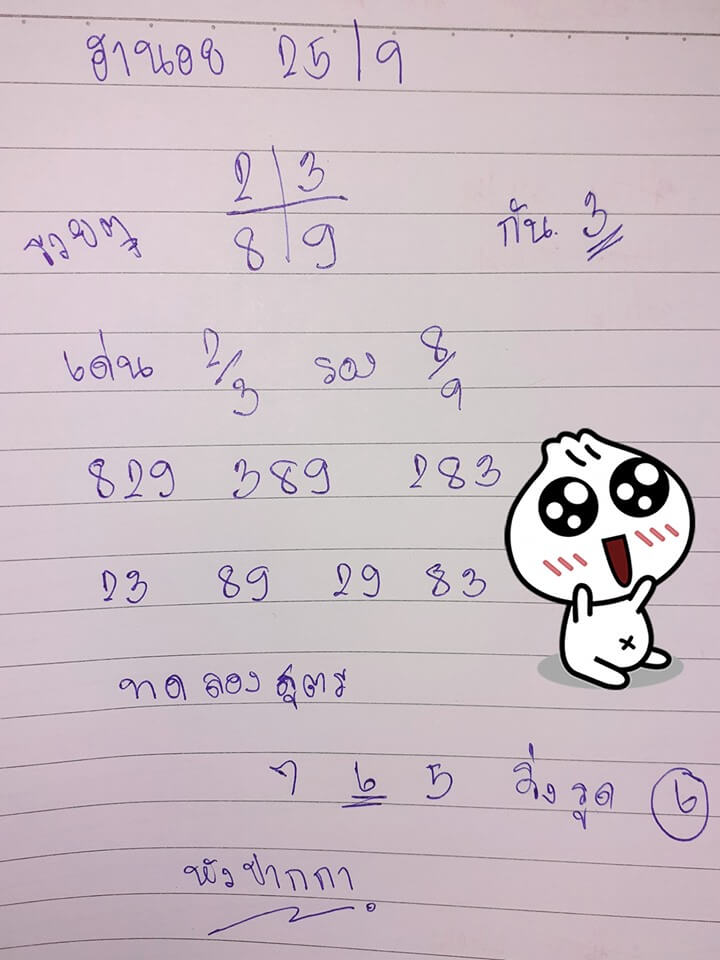 ฮานอย 25/9
2 3
รวยตู 8 9 กัน. 3
เด่น 2/3 รอง 8/9
829 389 283
23 89 29 83
ทดลองสูตร
7 6 5 วิ่งรูด 6
หัวปากกา